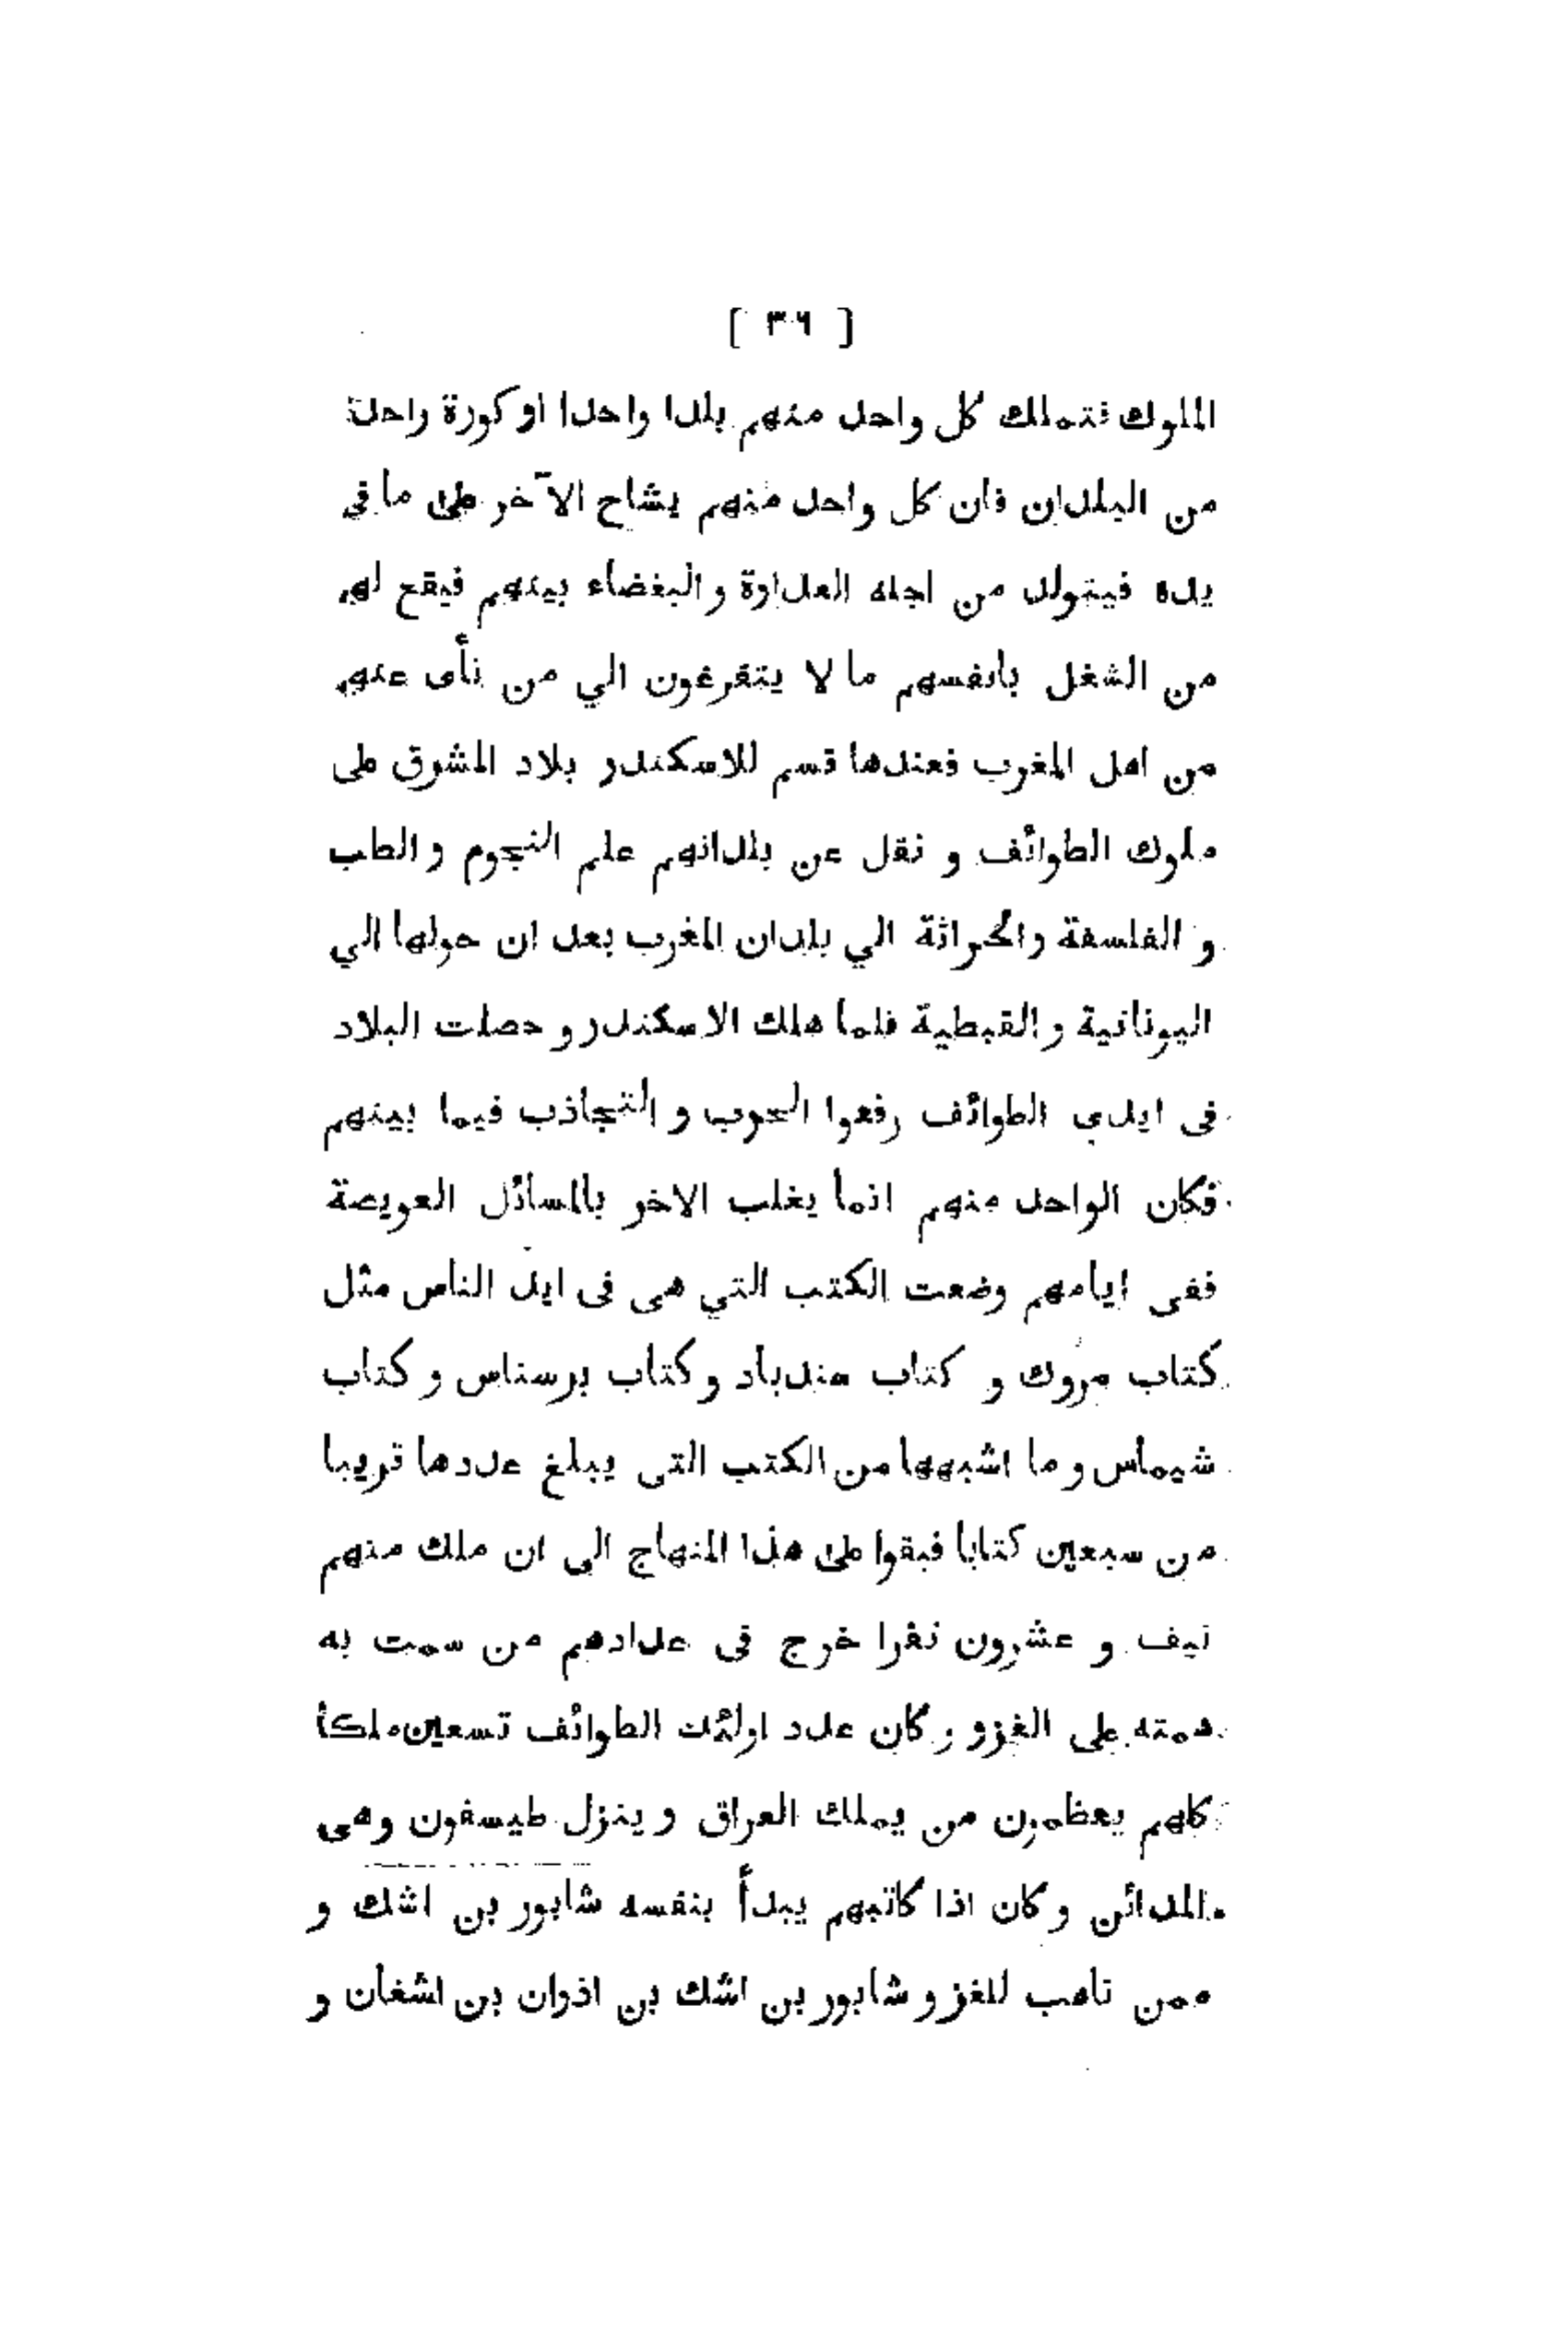 [ ٣٦ ]
الملوك فتملك كل واحد منهم بلدا واحدا او كورة واحدة
من البلدان فان كل واحد منهم يشاح الآخر على ما في
يده فيتولد من اجله العداوة و البغضاء بينهم فيقع لهم
من الشغل بانفسهم ما لا يتفرغون الي من نأى عنهم
من اهل المغرب فعندها قسم للاسكندر بلاد المشرق على
ملوك الطوائف و نقل عن بلدانهم علم النجوم و الطب
و الفلسفة و الحراثة الي بلدان المغرب بعد ان حولها الي
اليونانية و القبطية فلما هلك الاسكندر و حصلت البلاد
فى ايدي الطوائف رفعوا الحرب و التجاذب فيما بينهم
فكان الواحد منهم انما يغلب الاخر بالمسائل العويصة
ففى ايامهم وضعت الكتب التي هى فى ايد الناس مثل
كتاب مروك و كتاب سندباد و كتاب برسناس و كتاب
شيماس و ما اشبهها من الكتب التى يبلغ عددها قريبا
من سبعين كتابا فبقوا على هذا المنهاج الى ان ملك منهم
نيف و عشرون نفرا خرج فى عدادهم من سمت به
همته على الغزو و كان عدد اولئك الطوائف تسعين ملكا
كلهم يعظمون من يملك العراق و ينزل طيسفون وهى
المدائن و كان اذا كاتبهم يبدأ بنفسه شابور بن اشك و
ممن تاهب للغزو شابور بن اشك بن اذوان بن اشغان و